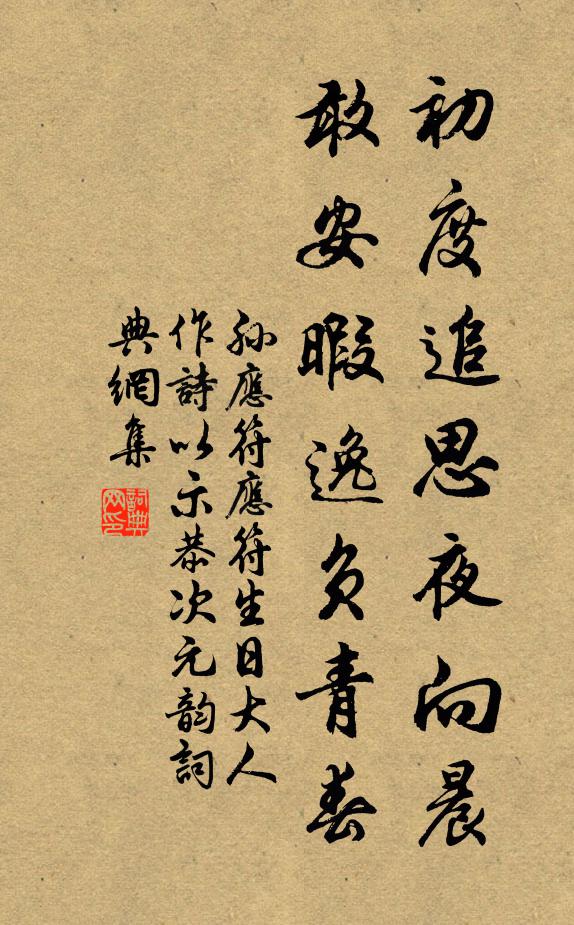 初度追思夜向晨
敢安暇逸負青春
孫應符應符生日大人
作詩以示恭次元韵詞
典網集
詞典網印